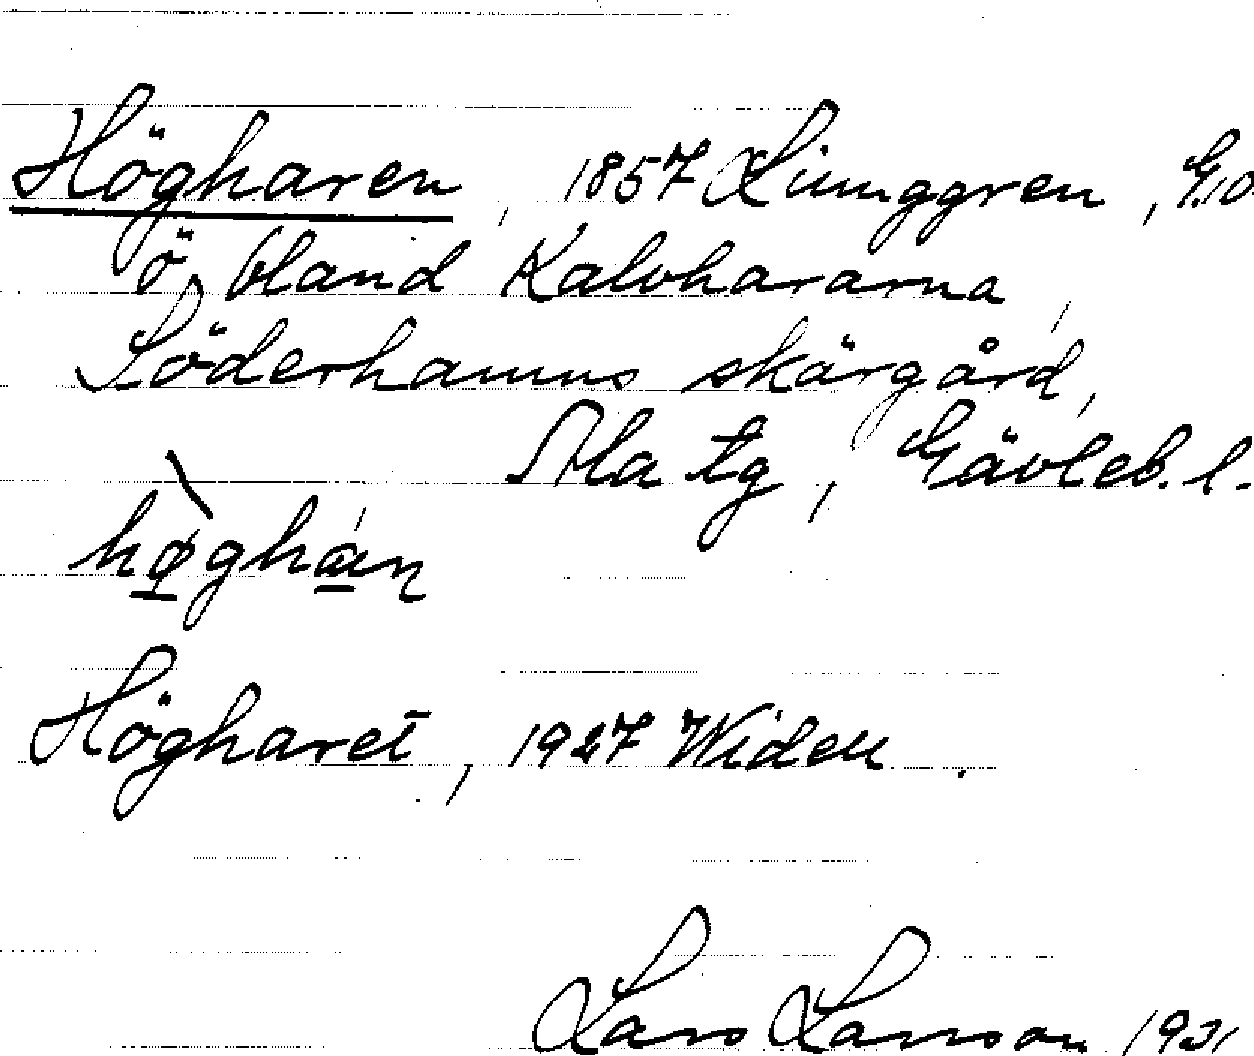 Högharen, 1857 Ljunggren, G.O
ö bland Kalvhararna,
Söderhamns skärgård,
Ala tg, Gävleb. l.
hø̀ghaɳ
Högharet, 1927 Widell.
Lars Larsson